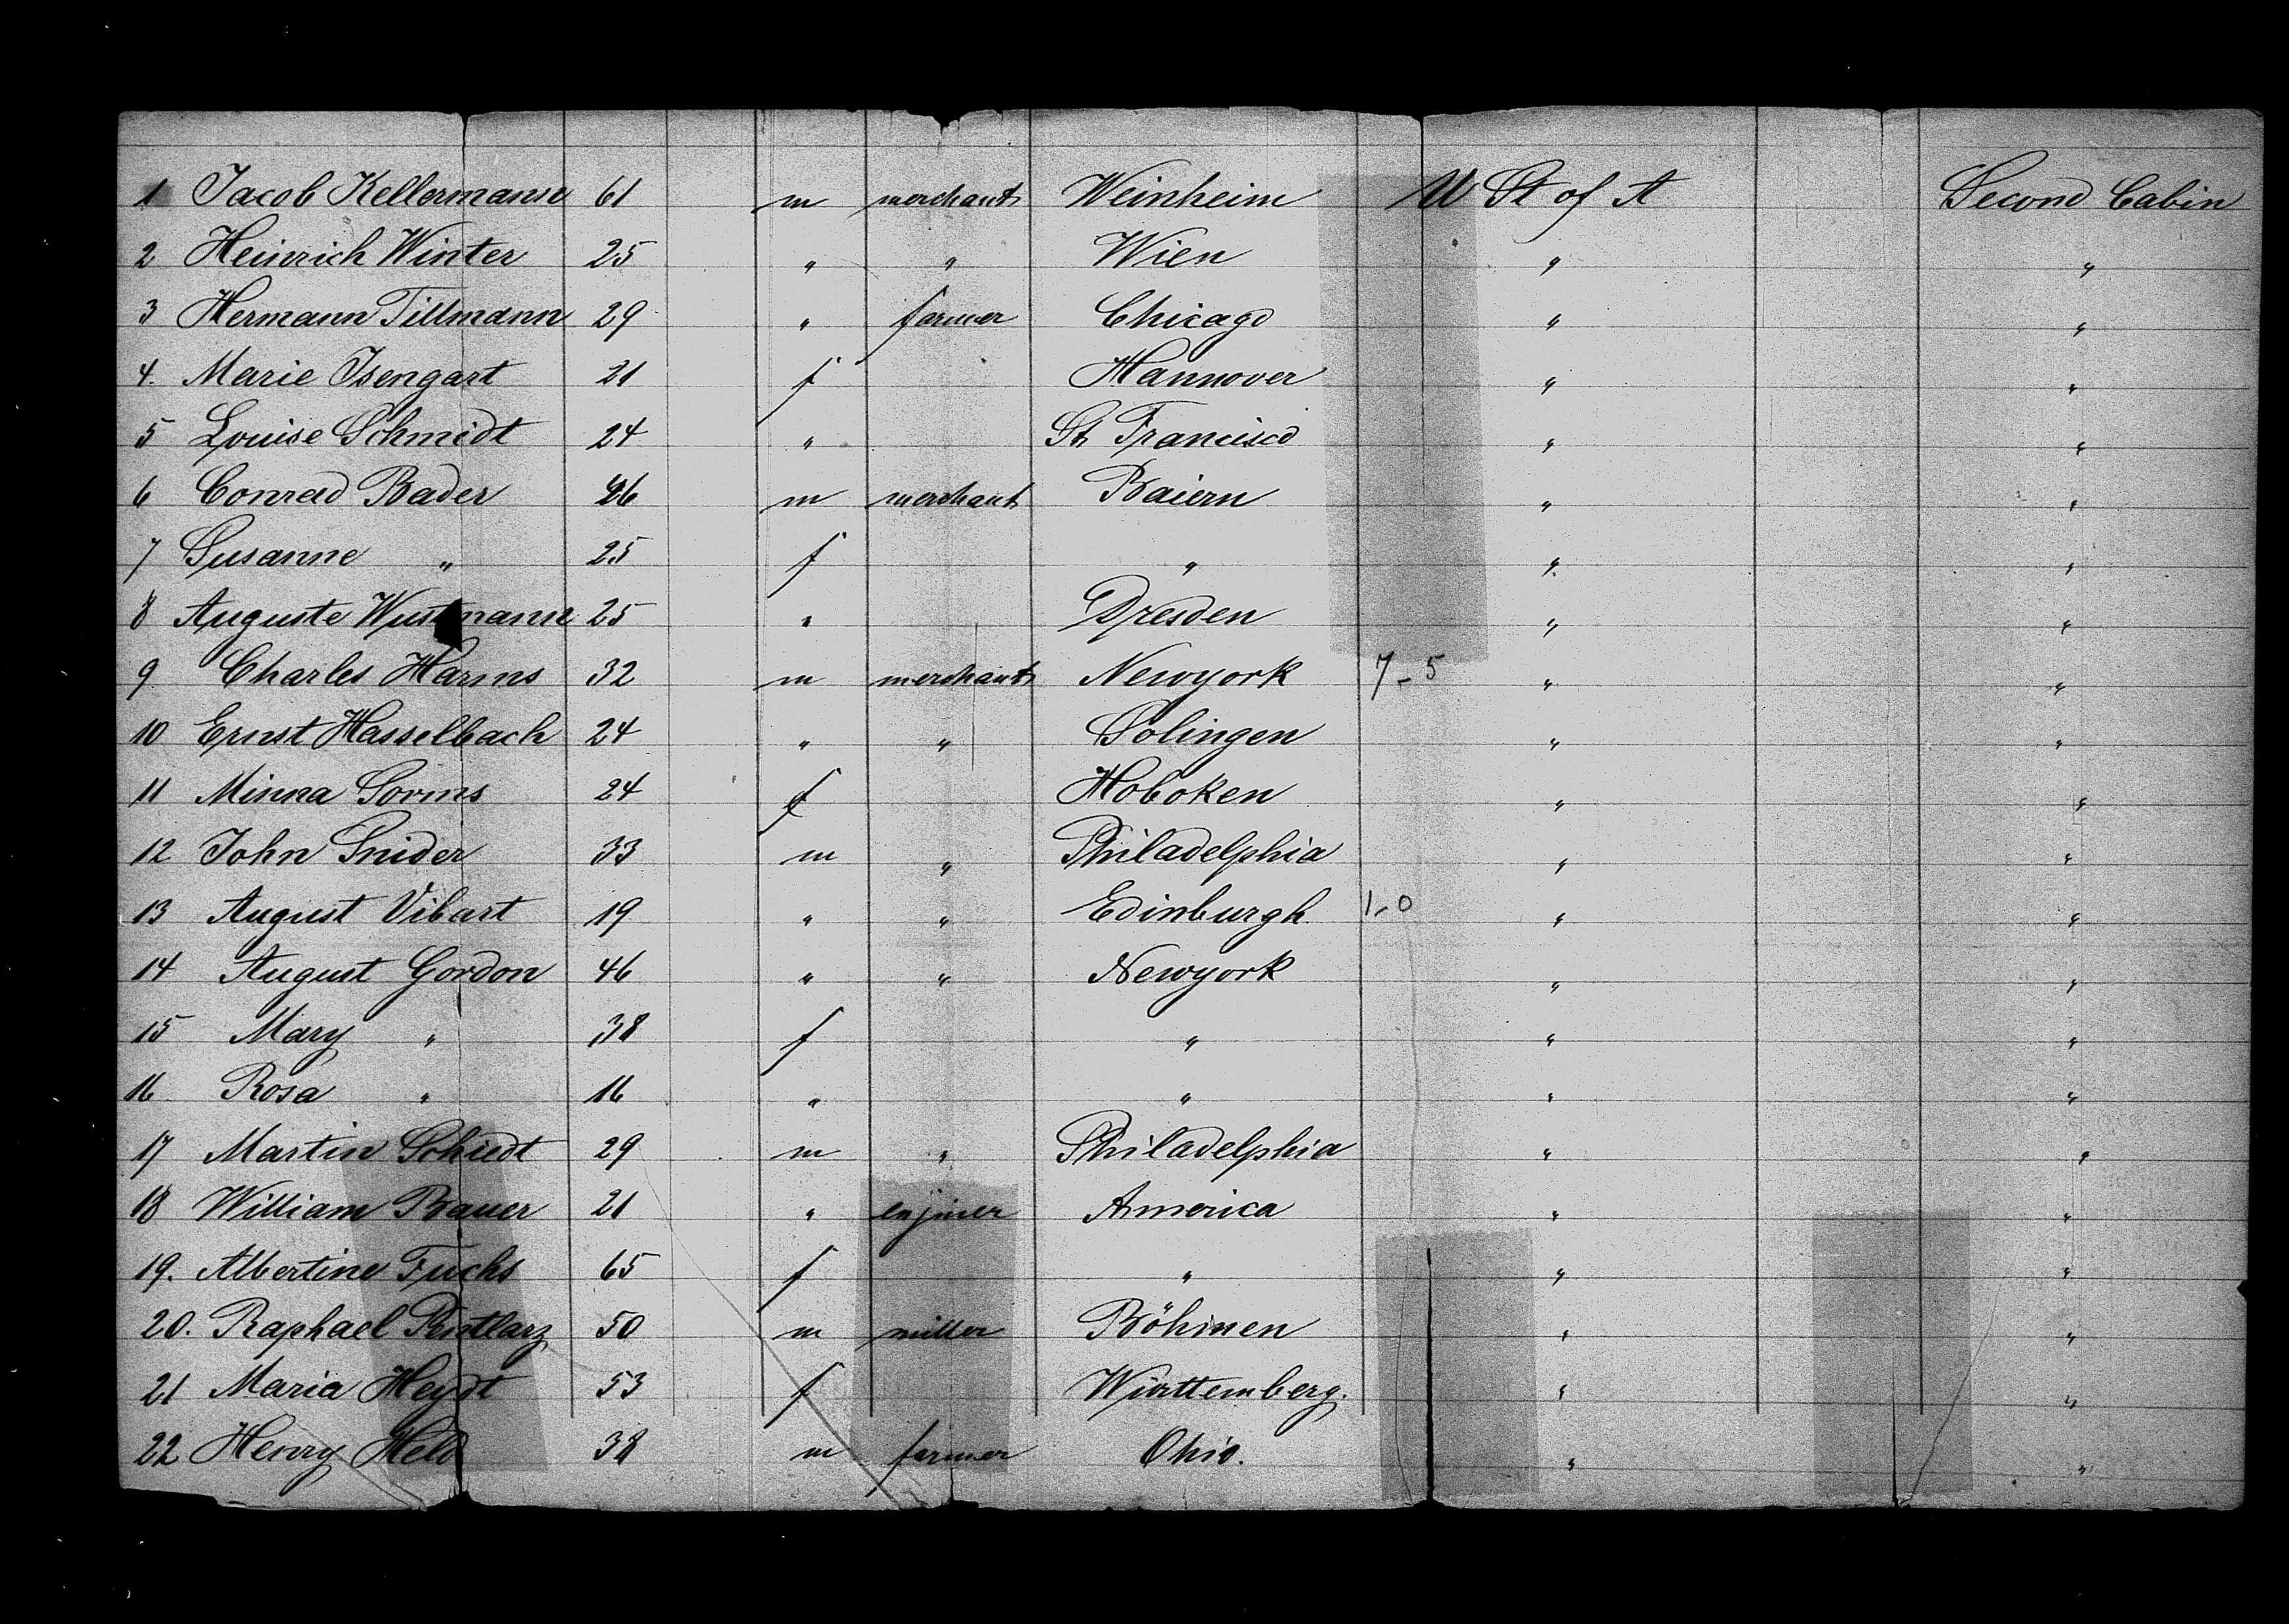 1 Jacob Kellermann 61 m merchant Weinheim U St of A Second Cabin
2 Heinrich Winter 25 " " Wien " "
3 Hermann Tillmann 29 " farmer Chicago " "
4. Marie Isengart 21 f Hannover " "
5 Louise Schmidt 24 " St Francisco " "
6 Conrad Bader 26 m merchant Baiern " "
7 Susanne " 25 f " " "
8 Auguste Wustmann 25 " Dresden " "
9 Charles Harms 32 m merchant Newyork 7-5 " "
10 Ernst Hasselbach 24 " " Solingen " "
11 Minna Sorms 24 f Hoboken " "
12 John Snider 33 m " Philadelphia " "
13 August Vibart 19 " " Edinburgh 1-0 " "
14 August Gordon 46 " " Newyork " "
15 Mary " 38 f " " "
16 Rosa " 16 " " " "
17 Martin Schiedt 29 m " Philadelphia " "
18 William Bauer 21 " enjiner America " "
19. Albertine Fuchs 65 f " " "
20. Raphael 50 m miller Böhmen " "
21 Maria Heydt 53 f Würtemberg. " "
22 Henry Held 38 m farmer Ohio. " "